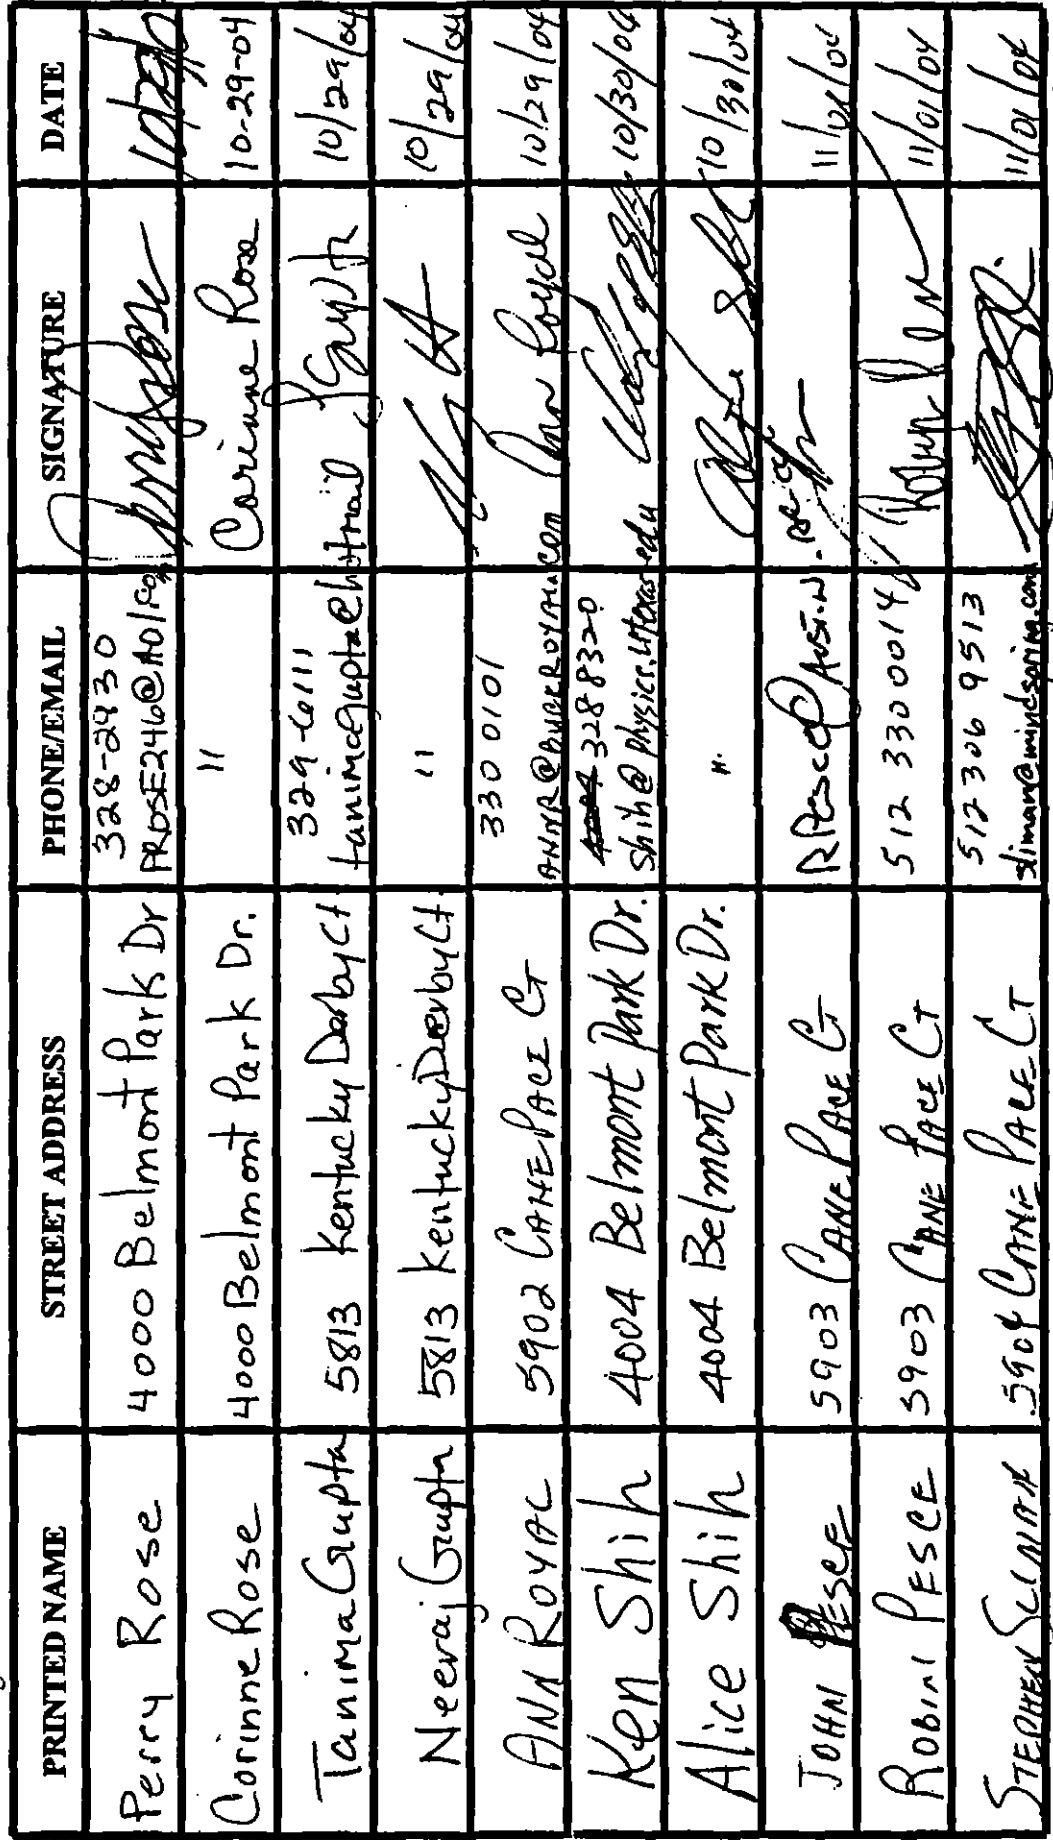 PRINTED NAME STREET ADDRESS PHONE/EMAIL SIGNATURE DATE
Perry Rose 4000 Belmont Park Dr 328-2930
PROSE246@AOL.com
Corinne Rose 4000 Belmont Park Dr. " Corinne Rose 10-29-04
Tanima Gupta 5813 Kentucky Derby Ct 329-6111 TGupta 10/29/04
tanimagupta@hotmail
Neeraj Gupta 5813 Kentucky Derby Ct " 10/29/04
ANN ROYAL 5902 CANE PACE CT 330 0101 Ann Royal 10/29/04
ANNR@BURKROYAL.COM
Ken Shih 4004 Belmont Park Dr. 328 8320 10/30/04
shih@physics.utexas.edu
Alice Shih 4004 Belmont Park Dr. " Alice Shih 10/30/04
JOHN PESCE 5903 CANE PACE CT RPesce@Austin.RR.com 11/01/04
ROBIN PESCE 5903 CANE PACE CT 512 330 0014 Robin 11/01/04
STEPHEN SLIMAN 5904 CANE PACE CT 512 306 9513 11/01/04
sliman@mindspring.com